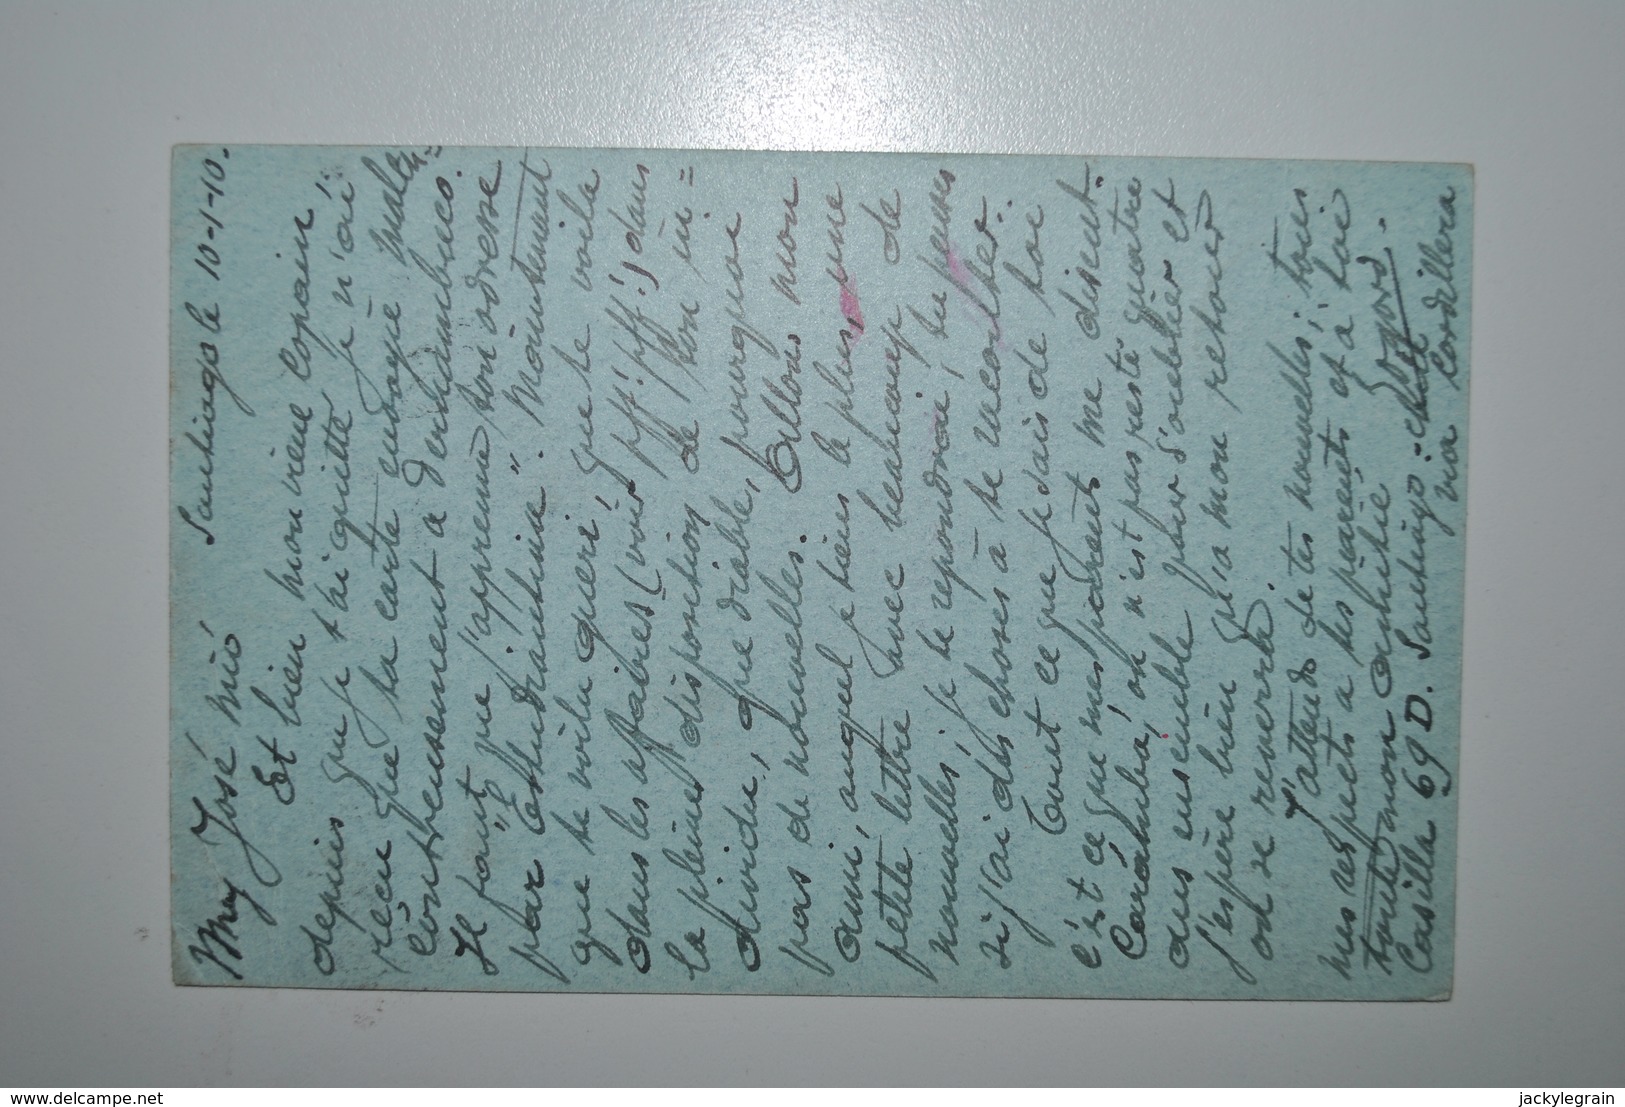 Santiago le 10-1-10.
Muy José mio
Et bien mon vieux copain!
depuis que je t'ai quitté je n'ai
reçu que ta carte envoyé malen=
contreusement à Pernambuco.
Il faut que j'apprenne ton adresse
par "l'Estudiantina". Maintenant
que te voila gueri, que te voila
dans les affaires (voir pff! pff!) dans
la pleine disposition de ton in=
dividu, que diable, pourquoi
pas de nouvelles. Allons mon
ami, auquel je tiens le plus, une
petite lettre avec beaucoup de
nouvelles; je te repondrai, tu penses
si j'ai des choses à te raconter.
Tout ce que je sais de toi
c'est ce que mes parents me disent.
Caramba, on n'est pas resté quatre
ans ensemble pour s'oublier et
j'espère bien qu'a mon retour
on se reverra.
J'attends de tes nouvelles; tous
mes respects a tes parents et à toi
toute mon amitié
Casilla 69 D. Santiago-Chili
via Cordillera
delcampe.net
jackylegrain